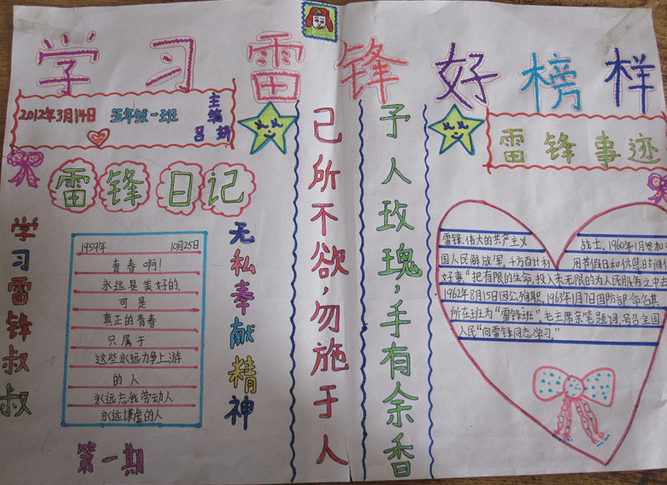 学习雷锋好榜样
2012年3月14日 五年级一班
主编
雷锋日记
学习雷锋叔叔
1959年 10月25日
青春啊!
永远是美好的,
可是
真正的青春
只属于
这些永远力争上游
的人
永远忘我劳动人
永远谦虚的人
无私奉献精神
第一期
己所不欲,勿施于人
予人玫瑰,手有余香
雷锋事迹
雷锋,伟大的共产主义 战士,1960年1月参加
国人民解放军,千方百计利 用节假日和休息时间
好事."把有限的生命,投入末无限的为人民服务之中去
1962年8月15日因公殉职,1963年1月7日国防部命名其
所在班为"雷锋班".毛主席亲笔题词,号召全国
人民"向雷锋同志学习."